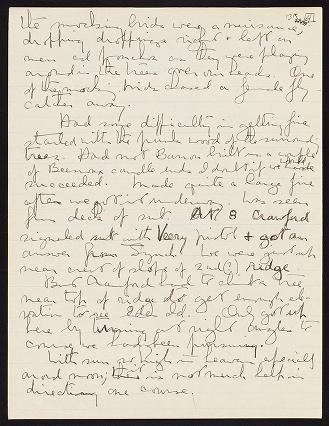 The mocking birds were a nuisance,
dropping droppings right & left on
men and ponchos as they were playing
around in the trees over our heads. One
of the mocking birds chased a female fly
catcher away.
Had some difficulty in getting fire
started with the punk wood of the surround
trees. Had not Barrow built in a couple
of Beeswax candle ends I doubt if we
succeeded. Made quite a large fire
after we got it underway. Was seen
from deck of Ship. At 8 Crawford
signaled ship with Veery pistol & got an
answer from Ship. We were just up
near crest of slope of 2nd (?) ridge.
But Crawford had to climb a tree
near top of ridge to get enough
to see. Only got up
here by turning at right angles to
course we had been pursuing.
With sun so high in heavens especially
around noon, there is not much help in
directing one course.